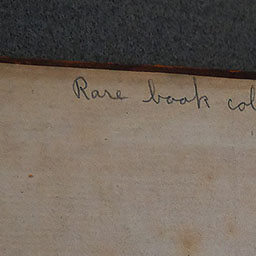 Rare book col